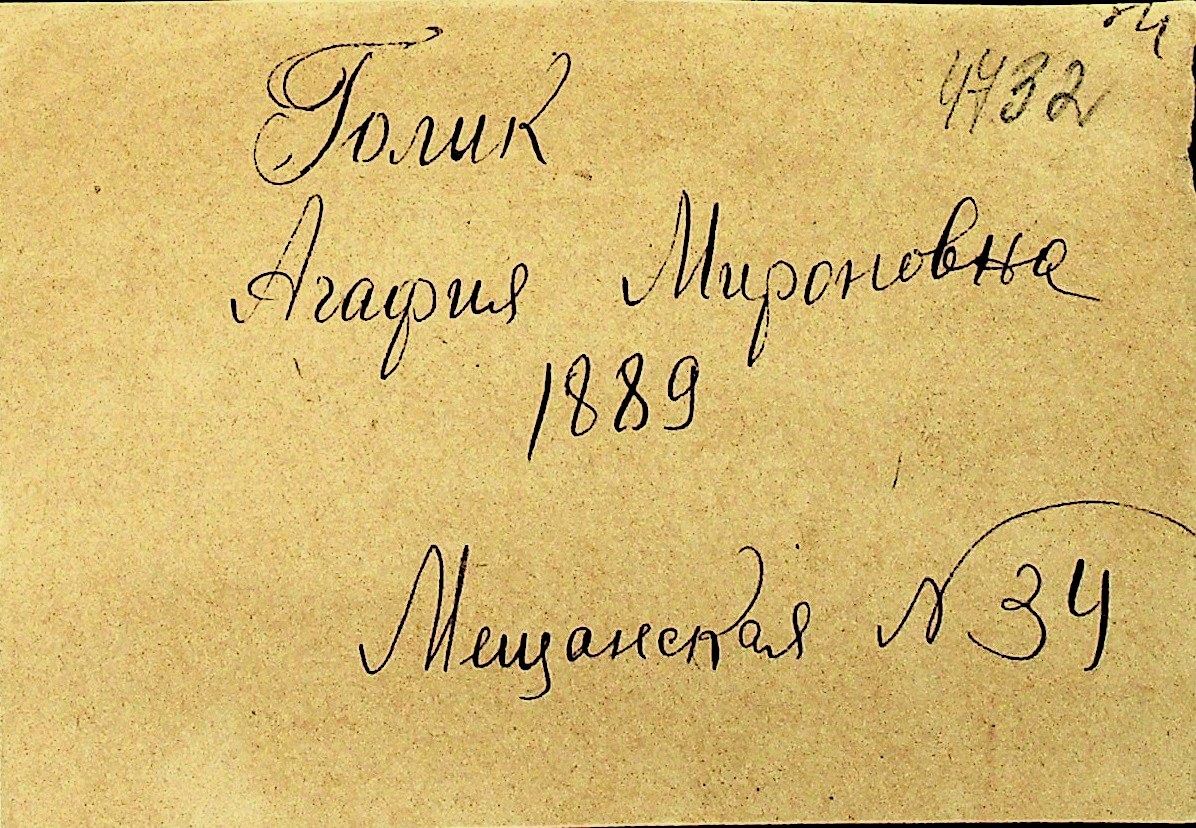 4732
Голик
Агафия Мироновна
1889
Мещанская N 34